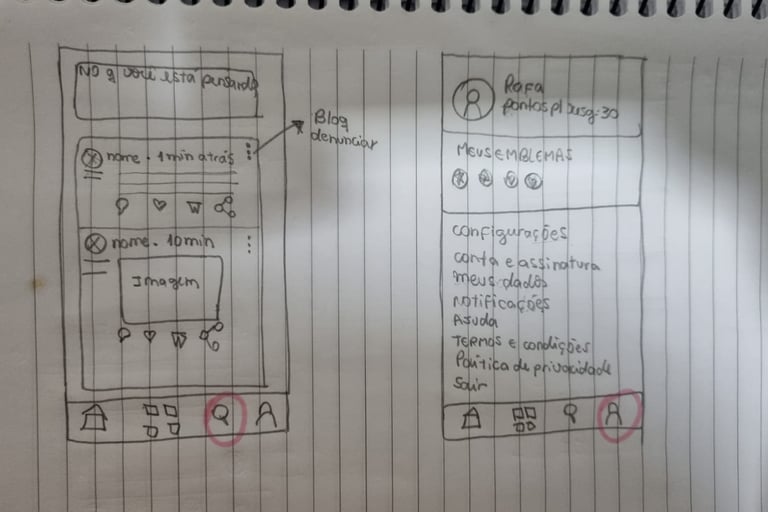 NO q você está pensando
nome. 1min atrás
Blog
denunciar
nome. 10min
Imagem
Rafa
pontos p/
:30
MEUS EMBLEMAS
configurações
conta e assinatura
meus dados
notificações
Ajuda
TERMOS e condições
Política de privacidade
Sair